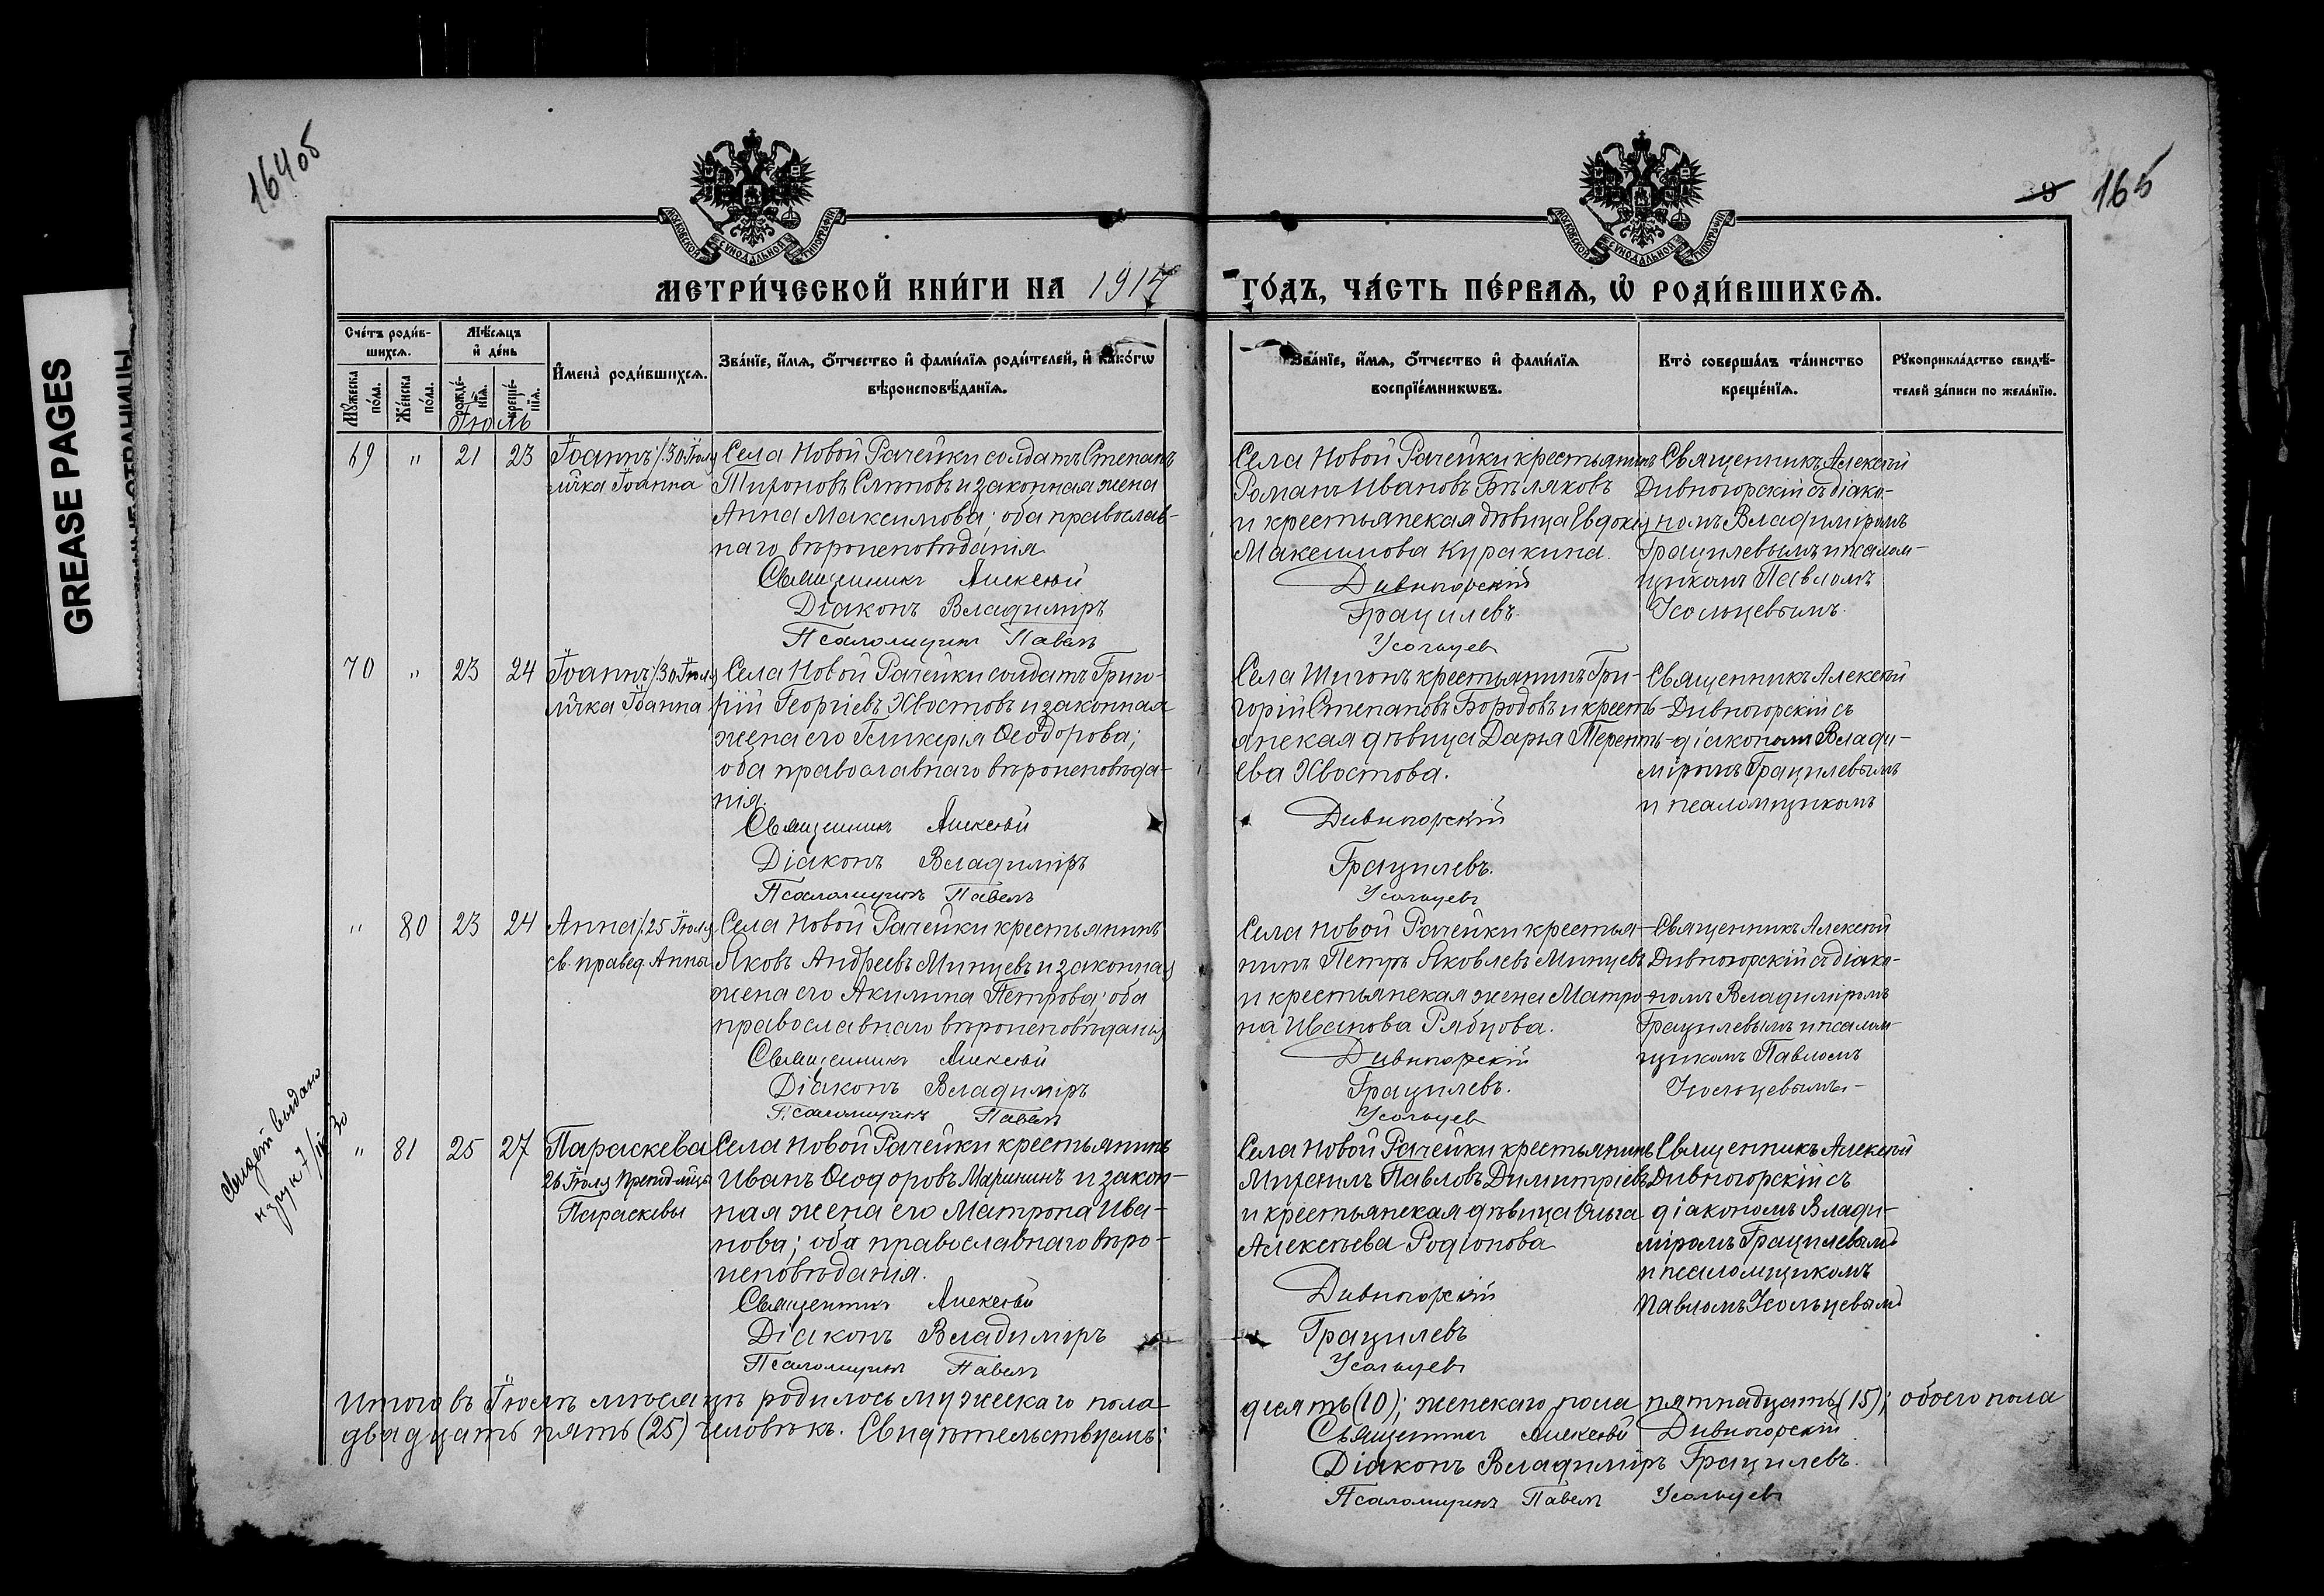 164об
165
GREASE PAGES
МОСКОВСКОЙ СѴНОДАЛЬНОЙ ТИПОГРАФІИ
МОСКОВСКОЙ СѴНОДАЛЬНОЙ ТИПОГРАФІИ
МЕТРИ́ЧЕСКОЙ КНИ́ГИ НА 1914
ГО́ДЪ, ЧА́СТЬ ПЕ́РВАѦ, Ѡ҆ РОДИ́ВШИХСѦ.
Сче́тъ роди́в-
шихсѧ.
Мꙋ́жеска по́ла.
Же́нска по́ла.
Мѣ́сѧцъ
и҆ де́нь
рожде́-
нїѧ.
креще́-
нїѧ.
И҆мена̀ роди́вшихсѧ.
Зва́нїе, и҆́мѧ, ѻ҆́тчество и҆ фами́лїѧ роди́телей, и҆ како́гѡ
вѣроисповѣ́данїѧ.
Зва́нїе, и҆́мѧ, ѻ҆́тчество и҆ фами́лїѧ
воспрїе́мникѡвъ.
Кто̀ соверша́лъ та́инство
креще́нїѧ.
Рꙋкоприкла́дство свидѣ́-
телей за́писи по жела́нїю.
Іюль
69 " 21 23
Іоаннъ /30 Іюля
Іоанна
Села Новой Рачейки солдатъ Степанъ
и законная жена
Анна Максимова; оба православ-
наго вѣроисповѣданія
Священникъ Алексѣй
Діаконъ Владиміръ
Псаломщикъ Павелъ
Села Новой Рачейки крестьянинъ
Романъ Ивановъ Бѣляковъ
и крестьянская дѣвица Евдокія
Максимова Куракина.
Дивногорскій
Грацилевъ.
Усольцевъ
Священникъ Алексѣй
Дивногорскій съ діако-
номъ Владиміромъ
Грацилевымъ и псалом-
щикомъ Павломъ
Усольцевымъ.
70 " 23 24
Іоаннъ /30 Іюля
Іоанна
Села Новой Рачейки солдатъ Григо-
рій Георгіевъ Хвостовъ и законная
жена его Гликерія Ѳеодорова;
оба православнаго вѣроисповѣда-
нія.
Священникъ Алексѣй
Діаконъ Владиміръ
Псаломщикъ Павелъ
Села Шигонъ крестьянинъ Гри-
горій Степановъ Бородовъ и кресть-
янская дѣвица Дарья Теренть-
ева Хвостова.
Дивногорскій
Грацилевъ.
Усольцевъ
Священникъ Алексѣй
Дивногорскій съ
діакономъ Влади-
міромъ Грацилевымъ
и псаломщикомъ
" 80 23 24
Анна /25 Іюля
св. правед. Анны
Села Новой Рачейки крестьянинъ
Яковъ Андреевъ Минцевъ и законная
жена его Акилина Петрова; оба
православнаго вѣроисповѣданія
Священникъ Алексѣй
Діаконъ Владиміръ
Псаломщикъ Павелъ
Села Новой Рачейки крестья-
нинъ Петръ Яковлевъ Минцевъ
и крестьянская жена Матро-
на Иванова Рябцова.
Дивногорскій
Грацилевъ.
Усольцев
Священникъ Алексѣй
Дивногорскій съ діако-
номъ Владиміромъ
Грацилевымъ и псалом-
щикомъ Павломъ
Усольцевымъ.
Свидет выдано
" 81 25 27
Параскева
26 Іюля
Параскевы
Села Новой Рачейки крестьянинъ
Иванъ Ѳеодоровъ Марининъ и закон-
ная жена его Матрона Ива-
нова; оба православнаго вѣро-
исповѣданія.
Священникъ Алексѣй
Діаконъ Владиміръ
Псаломщикъ Павелъ
Села Новой Рачейки крестьянинъ
Михаилъ Павловъ Димитріевъ
и крестьянская дѣвица Ольга
Алексѣева Родіонова
Дивногорскій
Грацилевъ
Усольцевъ
Священникъ Алексѣй
Дивногорскій съ
діакономъ Влади-
міромъ Грацилевымъ
и псаломщикомъ
Павломъ Усольцевымъ
Итого въ Іюлѣ мѣсяцѣ родилось мужескаго пола
десять (10); женскаго пола пятнадцать (15); обоего пола
двадцать пять (25) человѣкъ. Свидѣтельствуемъ:
Священникъ Алексѣй Дивногорскій
Діаконъ Владиміръ Грацилевъ.
Псаломщикъ Павелъ Усольцевъ